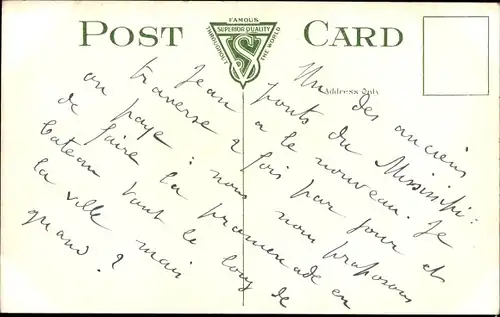 FAMOUS
SUPERIOR QUALITY
THROUGHOUT THE WORLD
VS
POST CARD
Address Only
Un des anciens
ponts du Missisipi :
Jean a le nouveau. Je
traverse 2 fois par jour et
on paye : nous nous proposons
de faire la promenade en
bateau tout le long de
la ville mais
quand ?